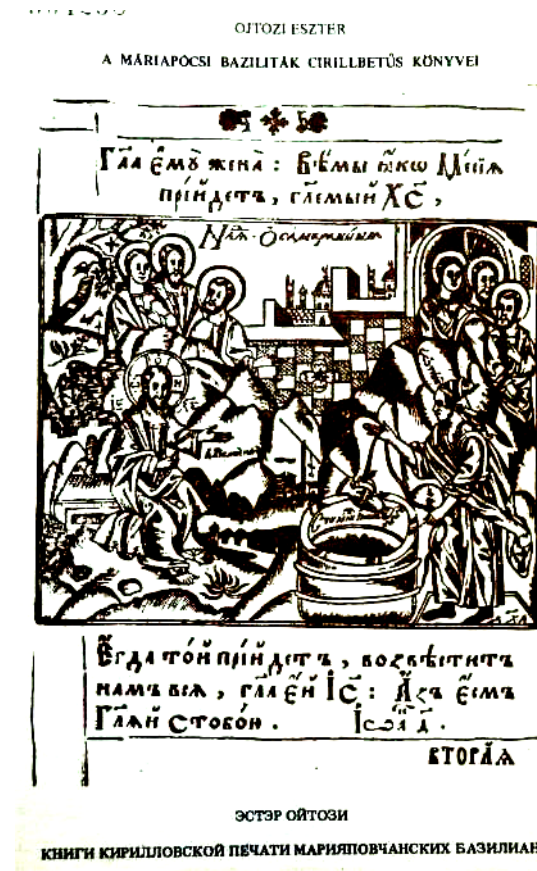 OJTOZI ESZTER
A MÁRIAPÓCSI BAZILITÁK CIRILLBETŰS KÖNYVEI
Гл҃а є҆мꙋ̀ жена̀ : вѣ́мы ꙗ҆́кѡ Мессі́ѧ
прїи́детъ , гл҃емый Хс҃ ,
Є҆гда то́й прїи́детъ , возвѣсти́тъ
намъ всѧ̑ , гл҃а є҆́й І҆с҃ : А҆́зъ є҆́смь
Гл҃ѧй с тобо́ю .
ВТОРА́Ѧ
ЭСТЭР ОЙТОЗИ
КНИГИ КИРИЛЛОВСКОЙ ПЕЧАТИ МАРИЯПОВЧАНСКИХ БАЗИЛИАН